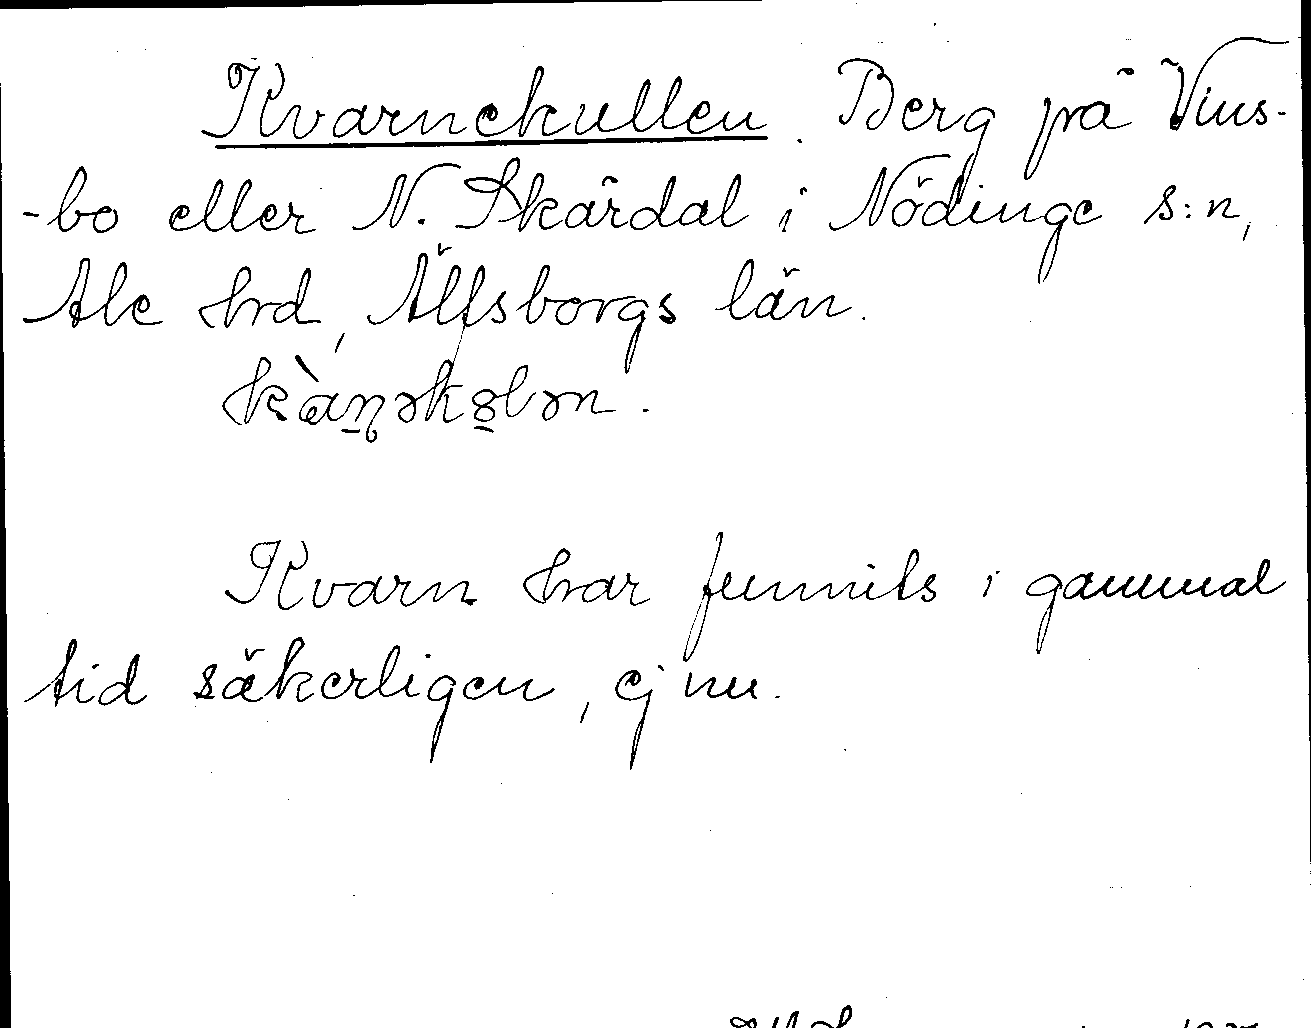 Kvarnekullen. Berg på Vins-
-bo eller N. Skårdal i Nödinge s:n,
Ale hrd, Älfsborgs län.
Kvarn har funnits i gammal
tid säkerligen, ej nu.